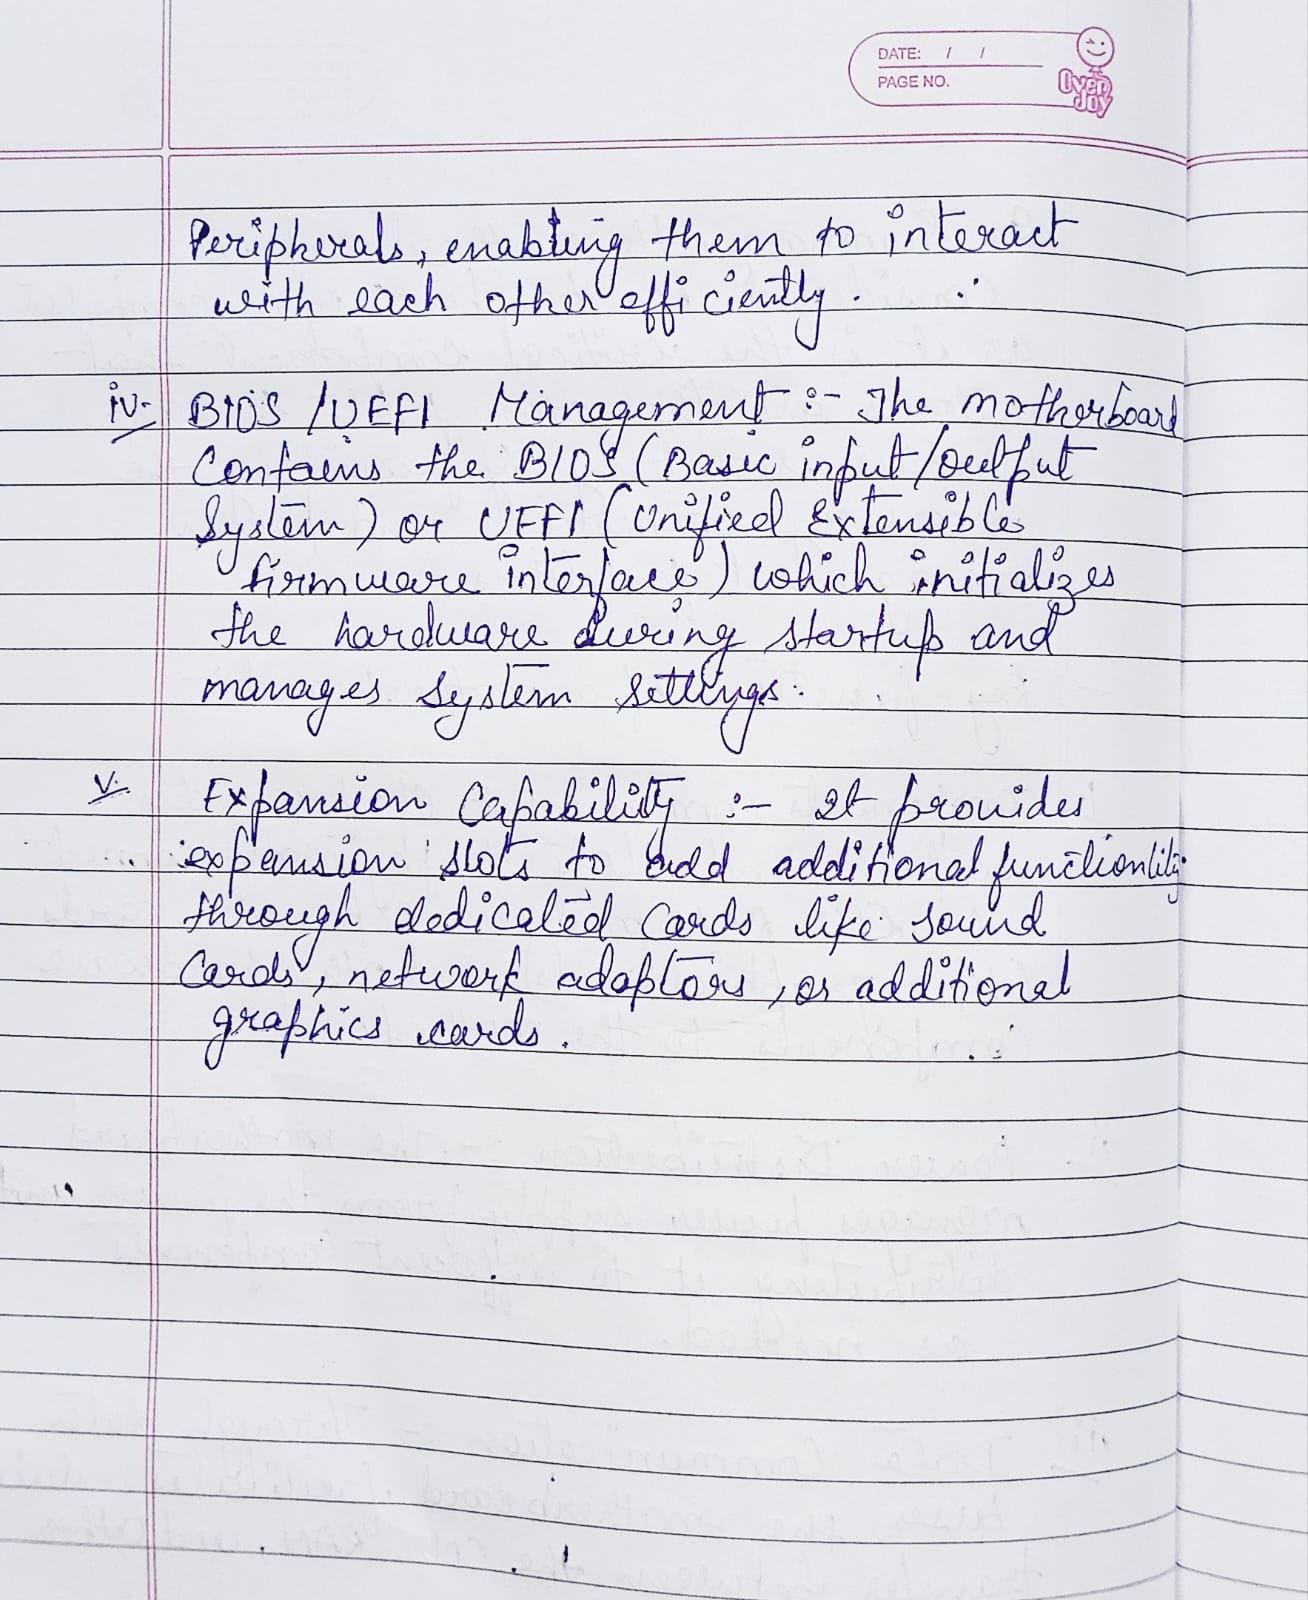 DATE: / /
PAGE NO.
Over Joy
Peripherals, enabling them to interact
with each other efficiently.
iv- BIOS / UEFI Management :- The motherboard
Contains the BIOS (Basic input/output
System) or UEFI (Unified Extensible
firmware interface) which initializes
the hardware during startup and
manages system settings.
v. Expansion Capability :- It provides
expansion slots to add additional functionlity
through dedicated Cards like sound
Cards, network adaptors, or additional
graphics cards.